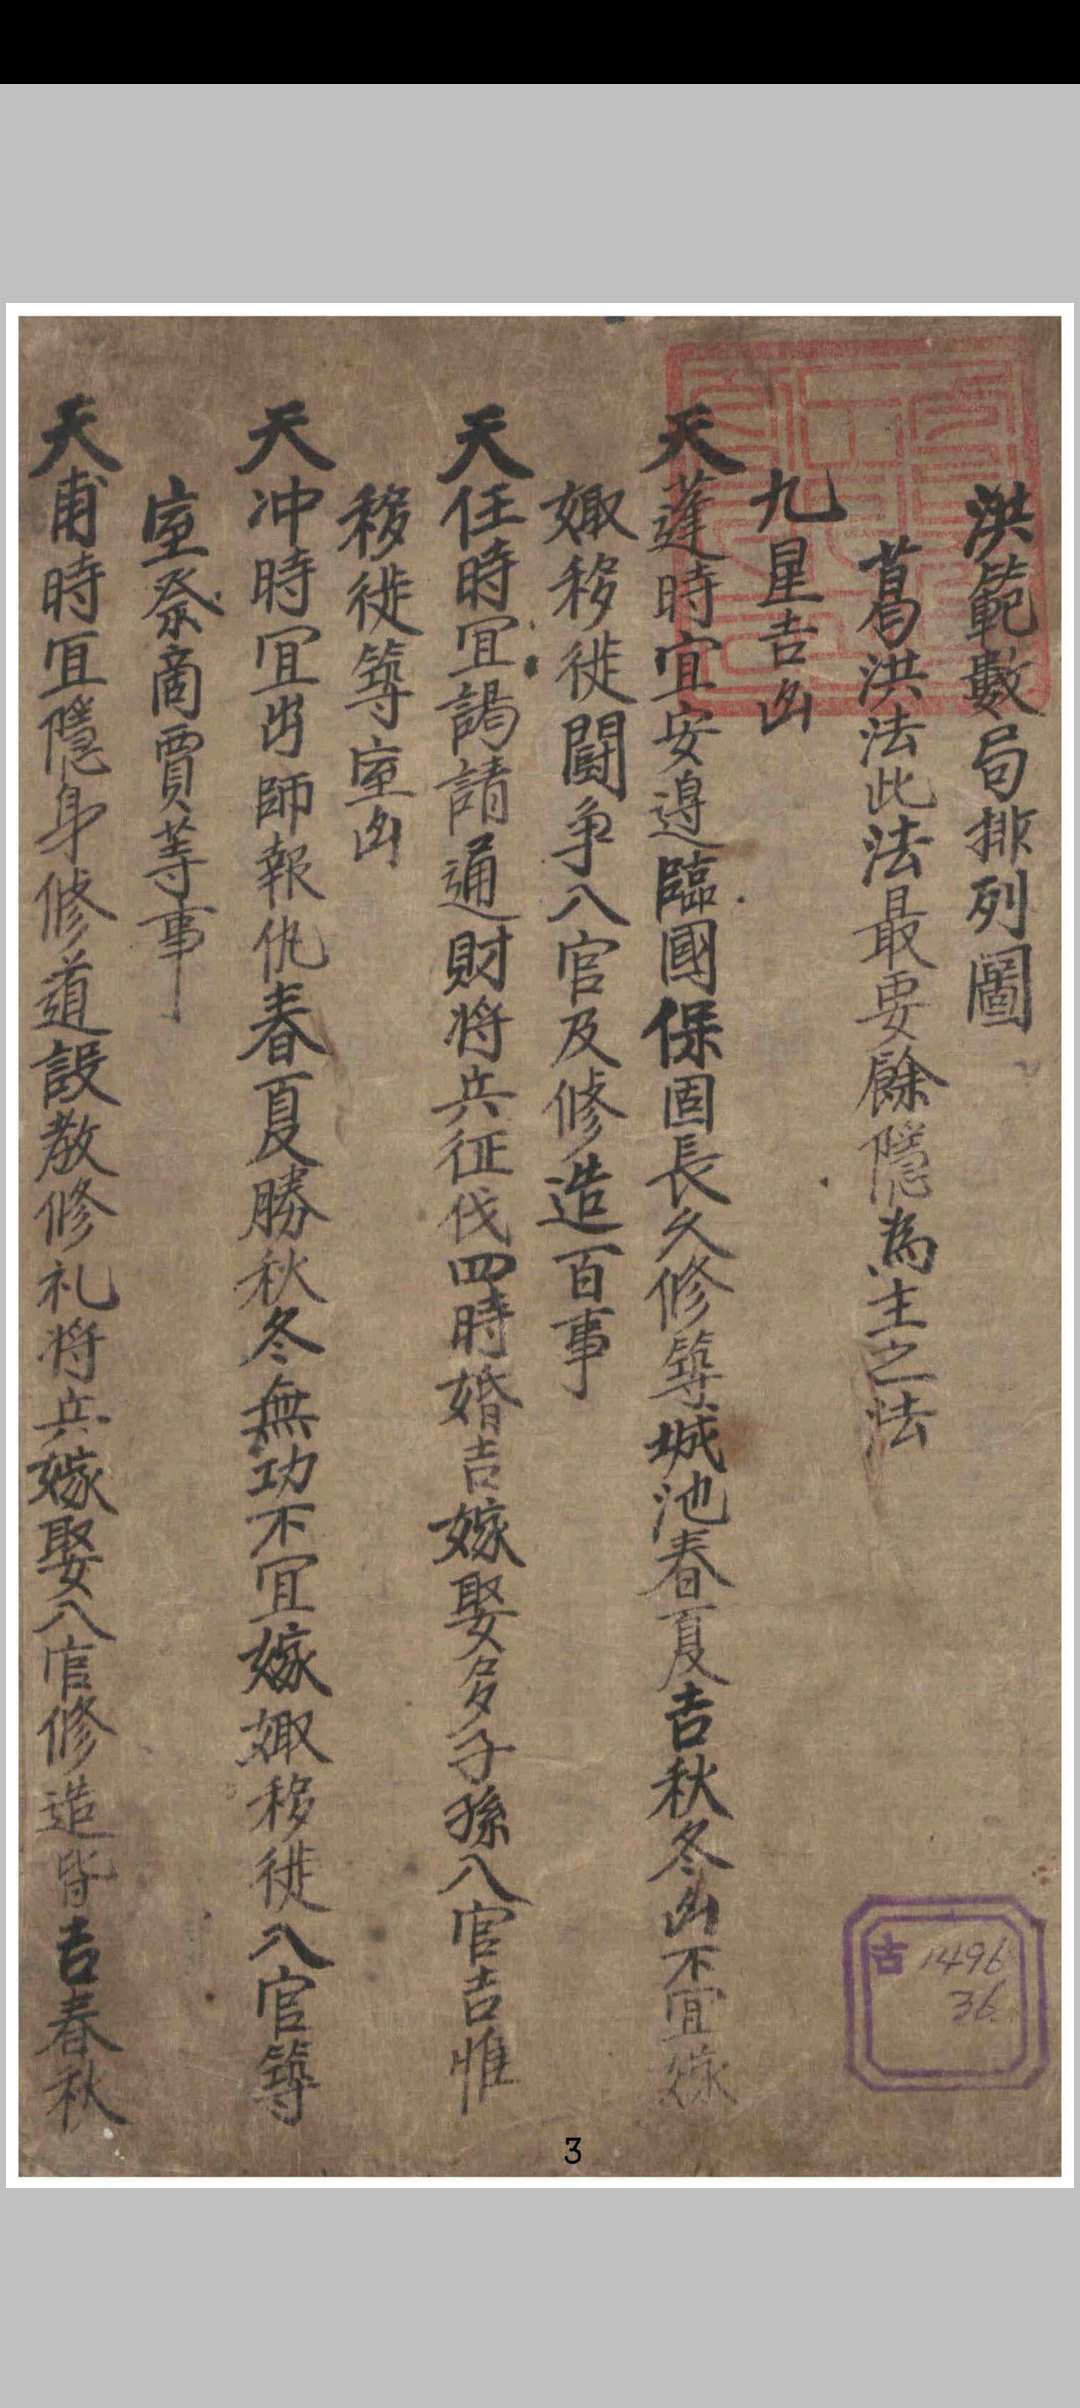 洪範數局排列圖
葛洪法此法最要餘隱為主之法
九星吉凶
天蓬時宜安邉臨國保固長久修築城池春夏吉秋冬凶不宜嫁
娵移徙鬪争入官及修造百事
天任時冝謁請通財将兵征伐四時婚吉嫁娶多子孫入官吉惟
移徙築室凶
天冲時冝出師報仇春夏勝秋冬無功不冝嫁娵移徙入官築
室祭啇賈䓁事
天甫時冝隱身修道設教修礼将兵嫁娶入官修造皆吉春秋
古 1496
36
3